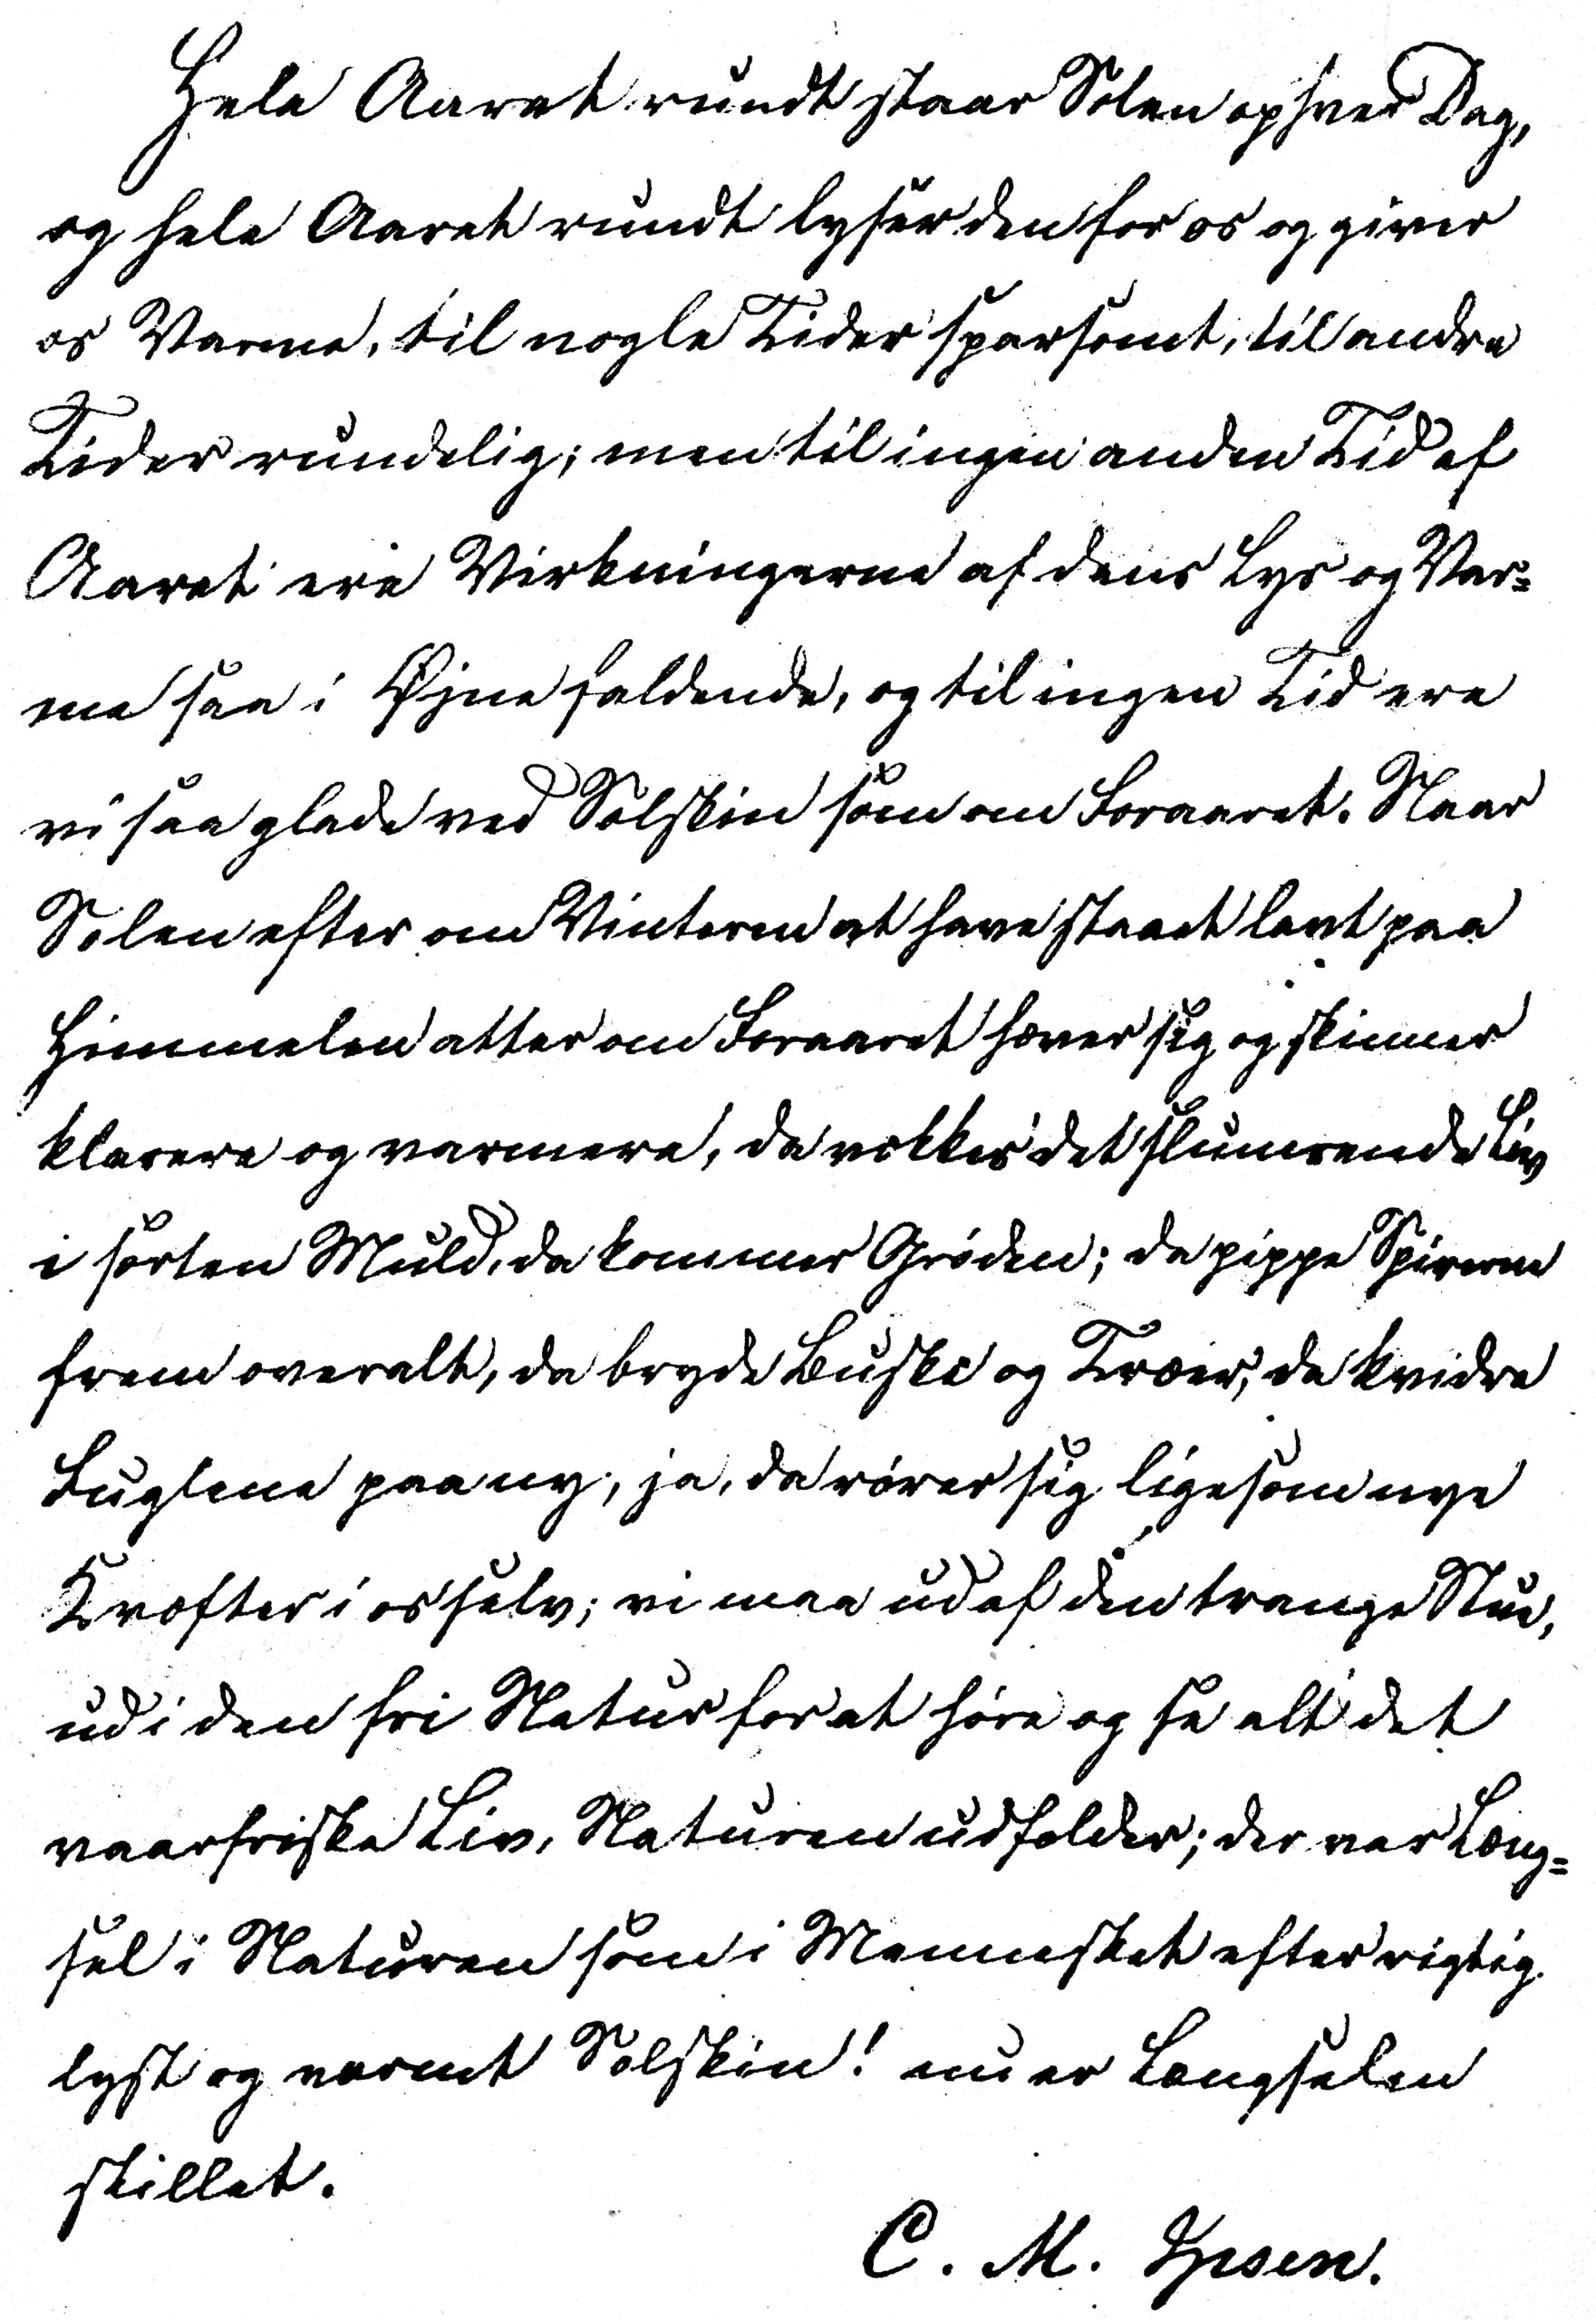 Hele Aaret rundt staar Solen op hver Dag,
og hele Aaret rundt lyser den for os og giver
os Varme, til nogle Tider sparsomt, til andre
Tider rundelig; men til ingen anden Tid af
Aaret ere Virkningerne af dens Lys og Var=
me saa i Øjne faldende, og til ingen Tid ere
vi saa glade ved Solskin som om Foraaret. Naar
Solen efter om Vinteren at have staaet lavt paa
Himmelen atter om Foraaret hæver sig og skinner
klarere og varmere, da vækkes det slumrende Liv
i sorten Muld, da kommer Grøden; da pippe Spirerne
frem overalt, da bryde Buske og Træer, da kvidre
Fuglene paa ny, ja, da rører sig ligesom nye
Kræfter i os selv; vi maa ud af den trange Stue,
ud i den fri Natur for at høre og se alt det
vaarfriske Liv, Naturen udfolder; der var Læng=
sel i Naturen som i Mennesket efter rigtig
lyst og varmt Solskin! nu er Længselen
stillet.
C. M. Ipsen.